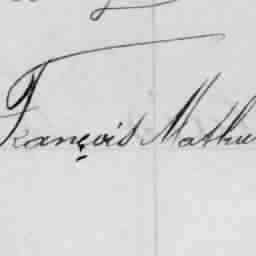 François Mathu